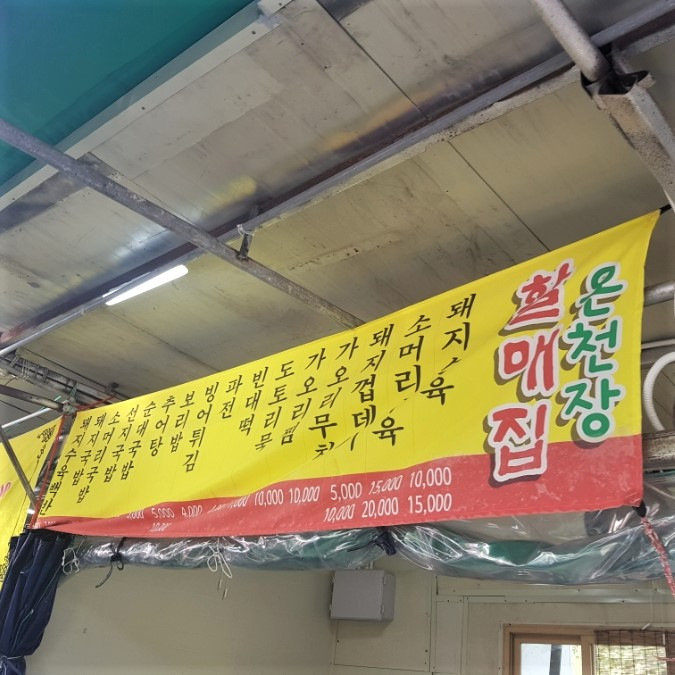 온천장
할매집
돼지 육
소머리 육
돼지껍데
가오리무
가오리찜
도토리묵
빈대떡
파전
빙어튀김
보리밥
추어탕
순대국밥
선지국밥
소머리국밥
돼지국밥
돼지수육백반
5,000 4,000 10,000 10,000 5,000 15,000 10,000
10,000 20,000 15,000